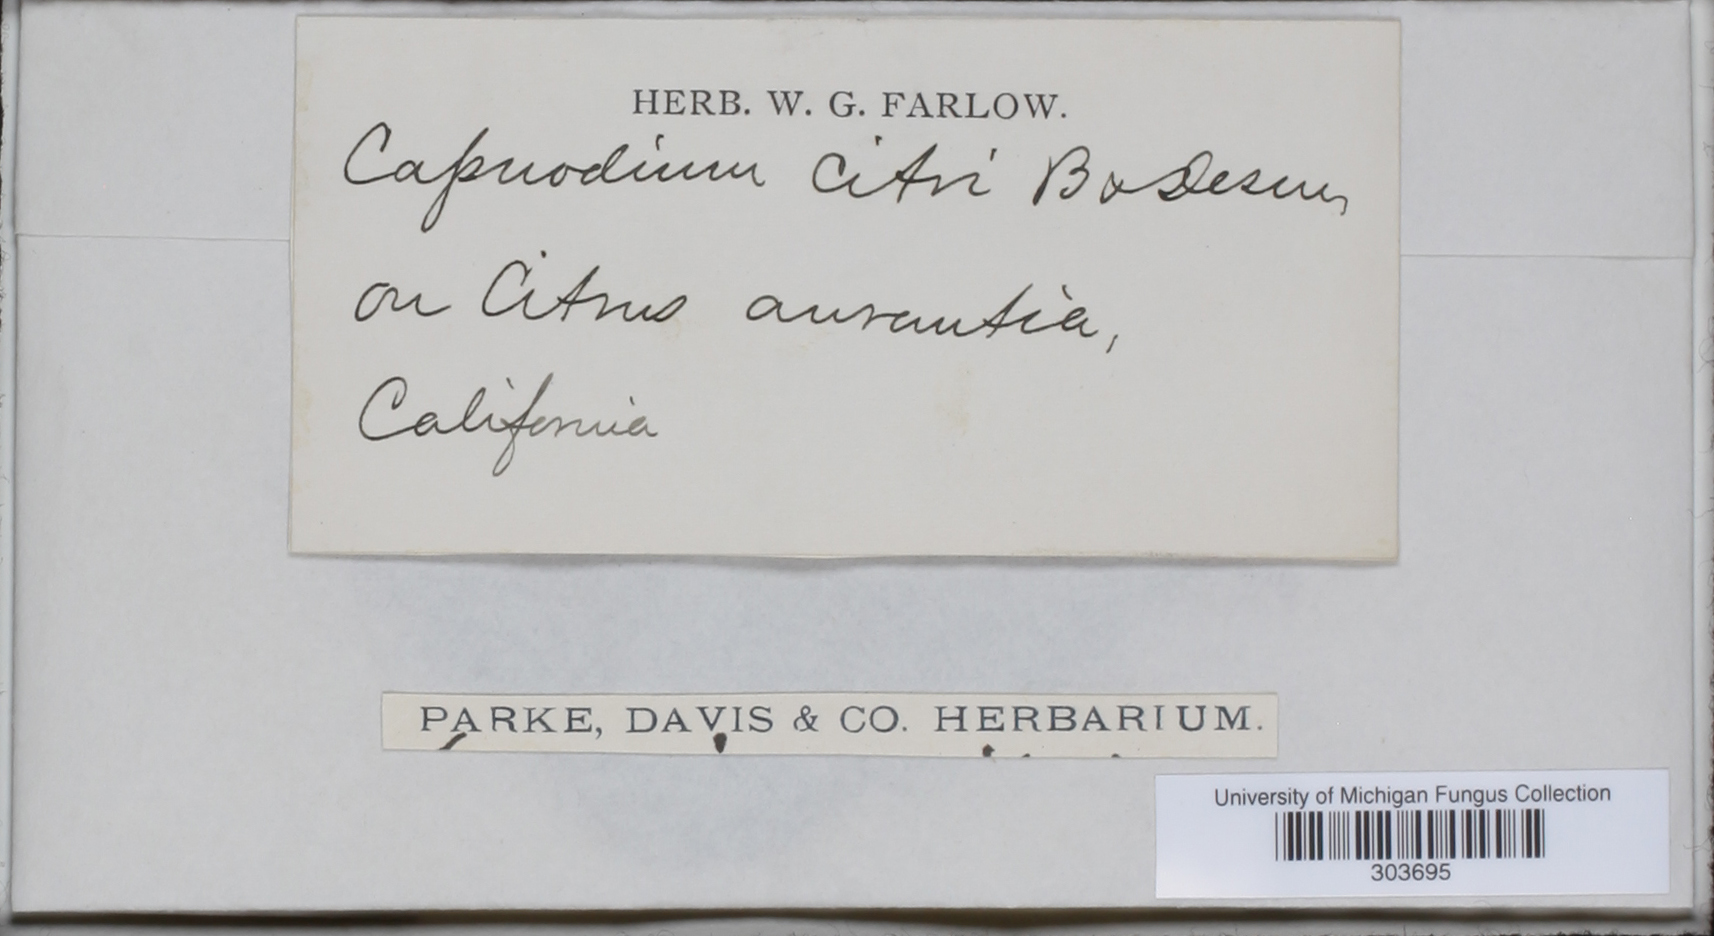 HERB. W. G. FARLOW.
Capnodium Citri B & Desm,
on Citrus aurantia,
California
PARKE, DAVIS & CO. HERBARIUM.
University of Michigan Fungus Collection
303695